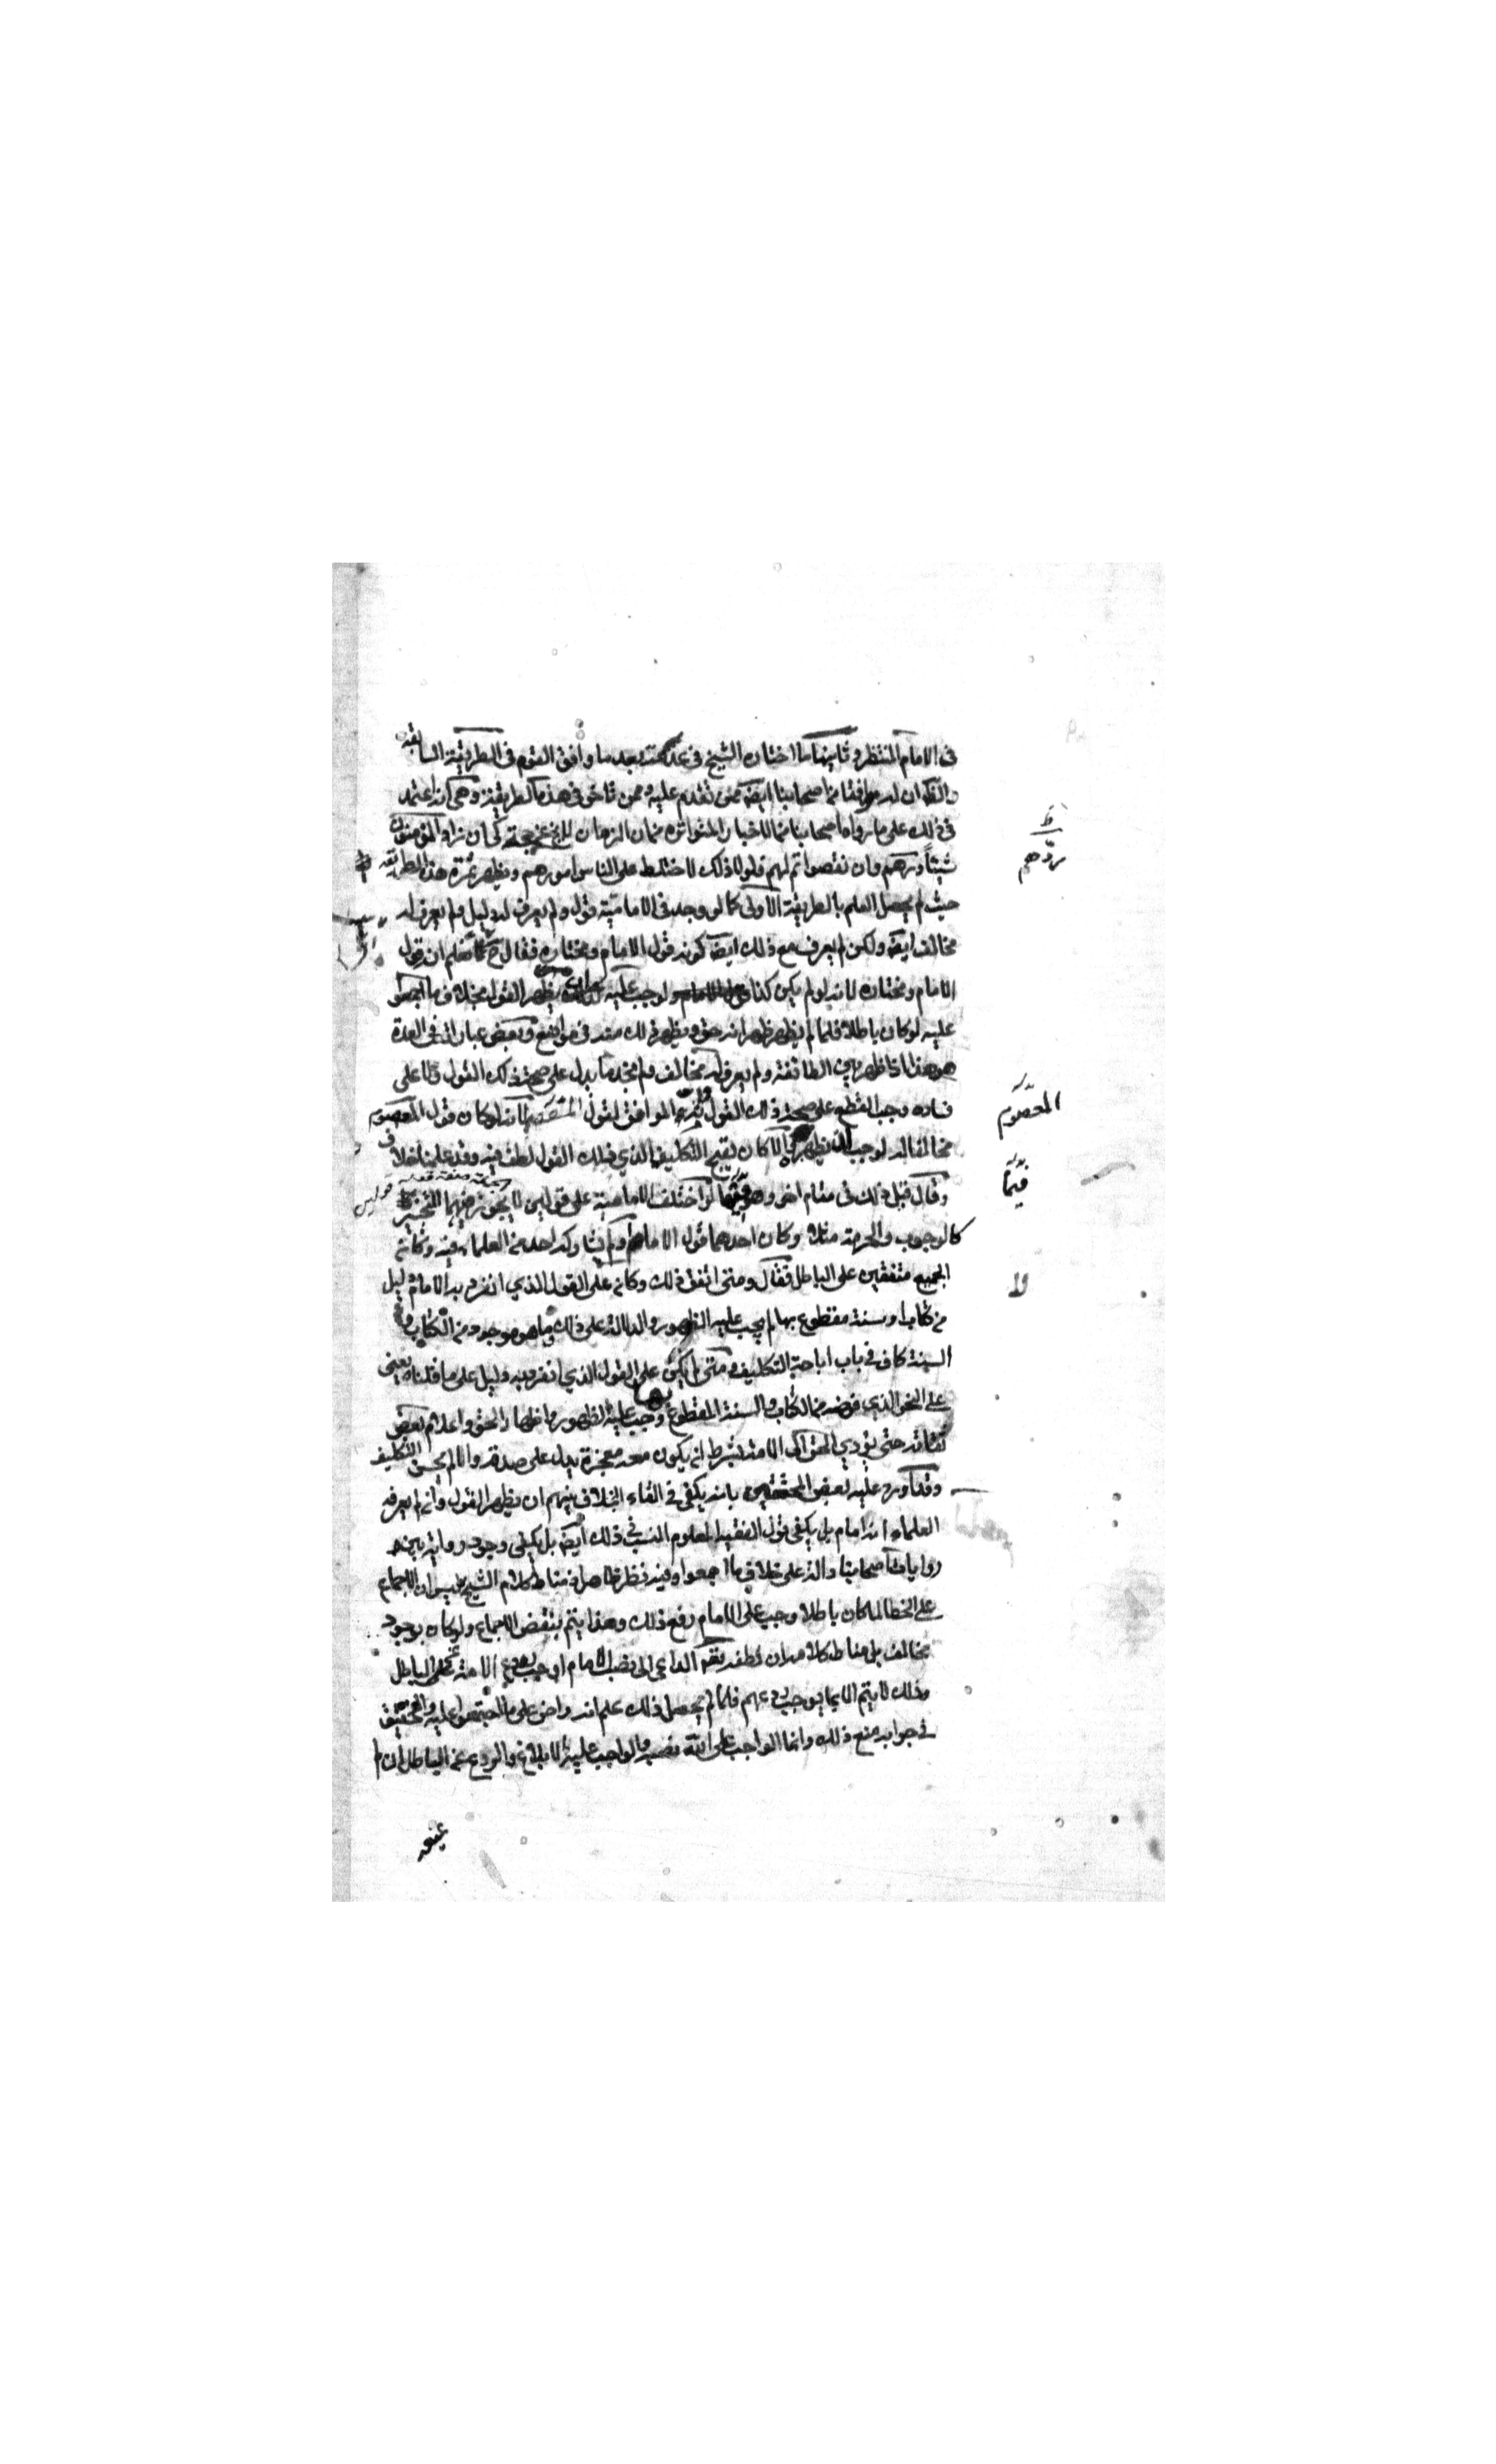 في الامام المنتظر وثانيها ما اختاره الشيخ في عدته بعد ما وافق القوم في الطريقة السابقة
والظ ان له موافقا من اصحابنا ايضا ممن تقدم عليه وممن تاخر في هذه الطريقة وهي انه اعتمد
في ذلك على ما رواه اصحابنا من الاخبار المتواترة من ان الزمان لا يخ عن حجة كي ان زاد المؤمنون
شيئا ردهم وان نقصوا اتمه لهم فلولا ذلك لاختلط على الناس امورهم ويظهر ثمرة هذه الطريقة
حيث لم يحصل العلم بالطريقة الاولى كما لو وجد في الامامية قول ولم يعرف له دليل ولم يعرف له
مخالف ايضا ولكن لم يعرف مع ذلك ايضا كونه قول الامام ومختاره فقال ح نعلم انه قول
الامام ومختاره لانه لو لم يكن كذلك لوجب عليه ان يظهر القول بخلاف ما اجمعوا
عليه لو كان باطلا فلما لم يظهر ظهر انه حق ويظهر ذلك منه في مواضع وبعض عباراته في العدة
هو هذا اذا ظهر بين الطائفة ولم يعرف له مخالف ولم نجد ما يدل على صحة ذلك القول ولا على
فساده وجب القطع على صحة ذلك القول وانه الموافق لقول المعصوم لانه لو كان قول المعصوم
مخالفا له لوجب ان يظهره والا كان يقبح التكليف الذي ذلك القول لطف فيه وقد علمنا خلاف
وقال قبل ذلك في مقام اخر وهو فيما لو اختلف الامامية على قولين لا يجري فيهما التخيير
كالوجوب والحرمة مثلا وكان احدهما قول الامام ولم يشاركه احد من العلماء فيه وكان
الجميع متفقين على الباطل فقال ومتى اتفق ذلك وكان على القول الذي انفرد به الامام دليل
من كتاب او سنة مقطوع بها لم يجب عليه الظهور والدلالة على ذلك لان ما هو موجود من الكتاب و
السنة كاف في باب ازاحة التكليف ومتى لم يكن على القول الذي انفرد به دليل على ما قلناه يعني
على النحو الذي فرضه من الكتاب والسنة المقطوع بها وجب عليه الظهور واظهار الحق واعلام بعض
ثقاته حتى يؤدي الحق الى الامة بشرط ان يكون معه معجزة يدل على صدقه والا لم يحسن التكليف
وقد اورد عليه بعض المحققين بانه يكفي في القاء الخلاف بينهم ان يظهر القول وان لم يعرفه
العلماء انه امام بل يكفي قول الفقيه المعلوم النسب في ذلك ايضا بل يكفي وجود رواية بين
روايات اصحابنا دالة على خلاف ما اجمعوا وفيه نظر ظاهر اذ مناط كلام الشيخ ليس ان الاجماع
على الخطا لما كان باطلا وجب على الامام رفع ذلك وهذا يتم بنقض الاجماع ولو كان بوجود
مخالف بل مناط كلامه ان لطفه تعه الداعي الى نصب الامام اوجب ردع الامة عن الباطل
وذلك لا يتم الا بما يوجب ردعهم فلما لم يحصل ذلك علم انه راض على ما اجتمعوا عليه والتحقيق
في جوابه منع ذلك وانما الواجب على الله نصبه والواجب عليه الابلاغ والردع عن الباطل ان لم
يردهم
المعصوم
فيما